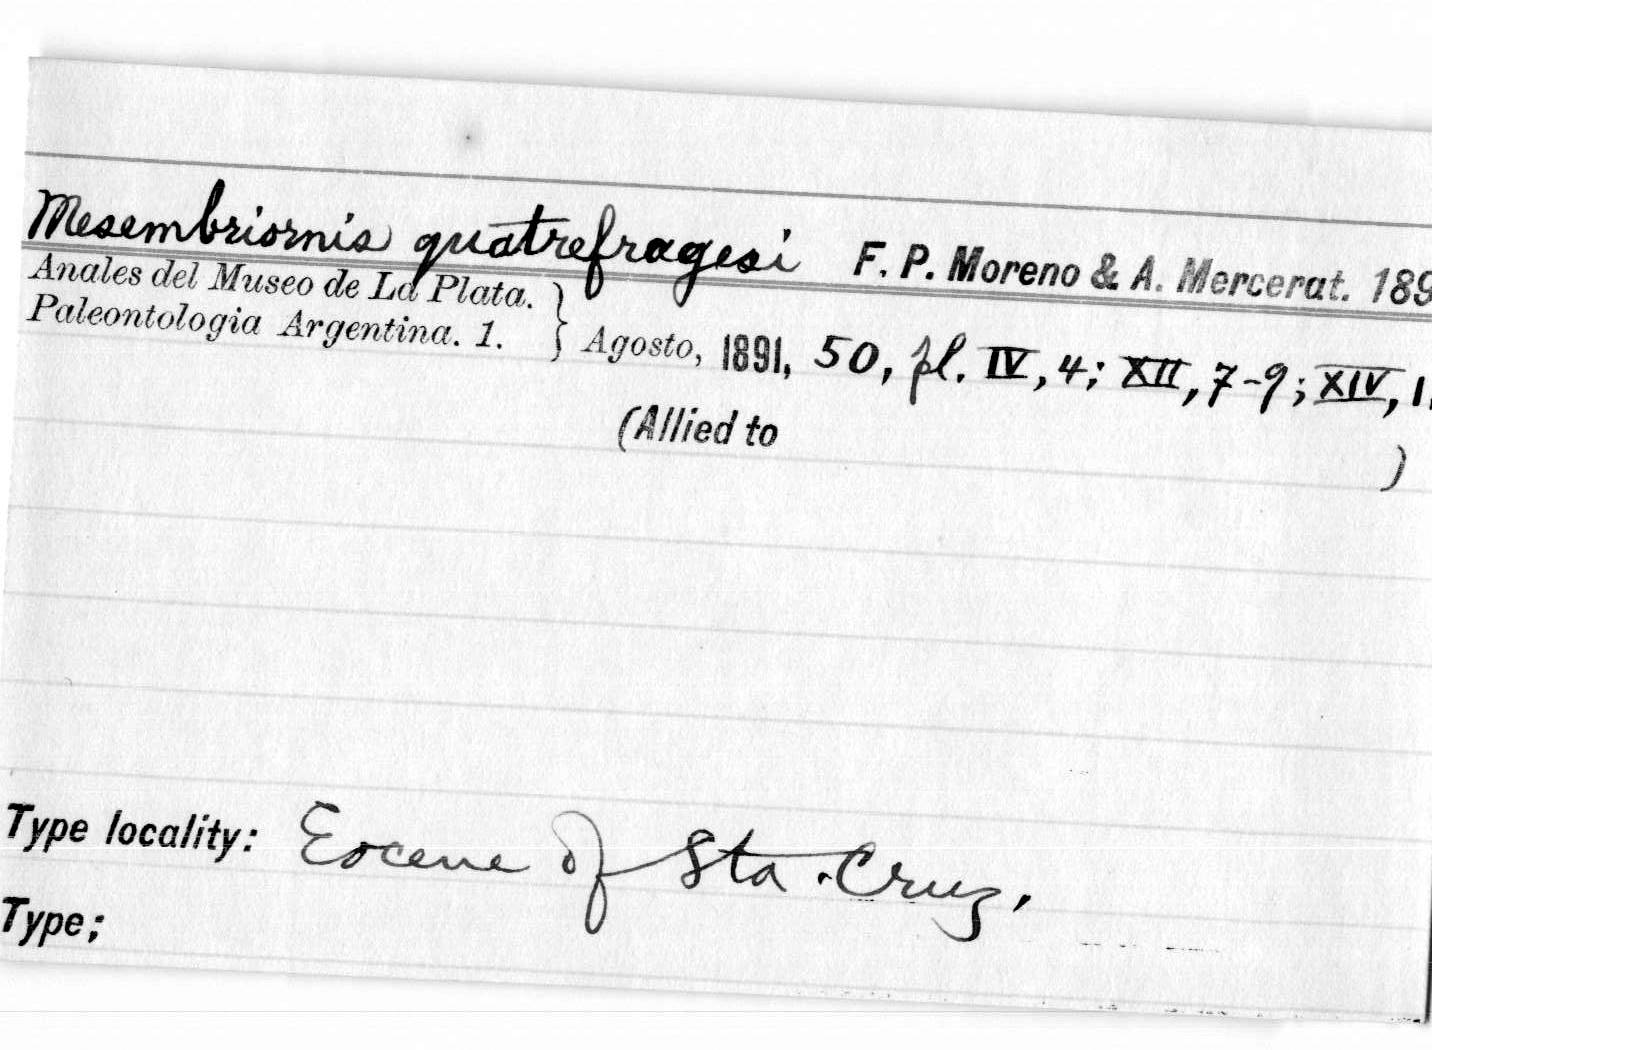 Mesembriornis quatrefragesi F. P. Moreno & A. Mercerat. 189
Anales del Museo de La Plata. }
Paleontologia Argentina. 1. } Agosto, 1891, 50, pl. IV, 4; XII, 7-9; XIV, 1.
(Allied to )
Type locality: Eocene of Sta. Cruz,
Type;